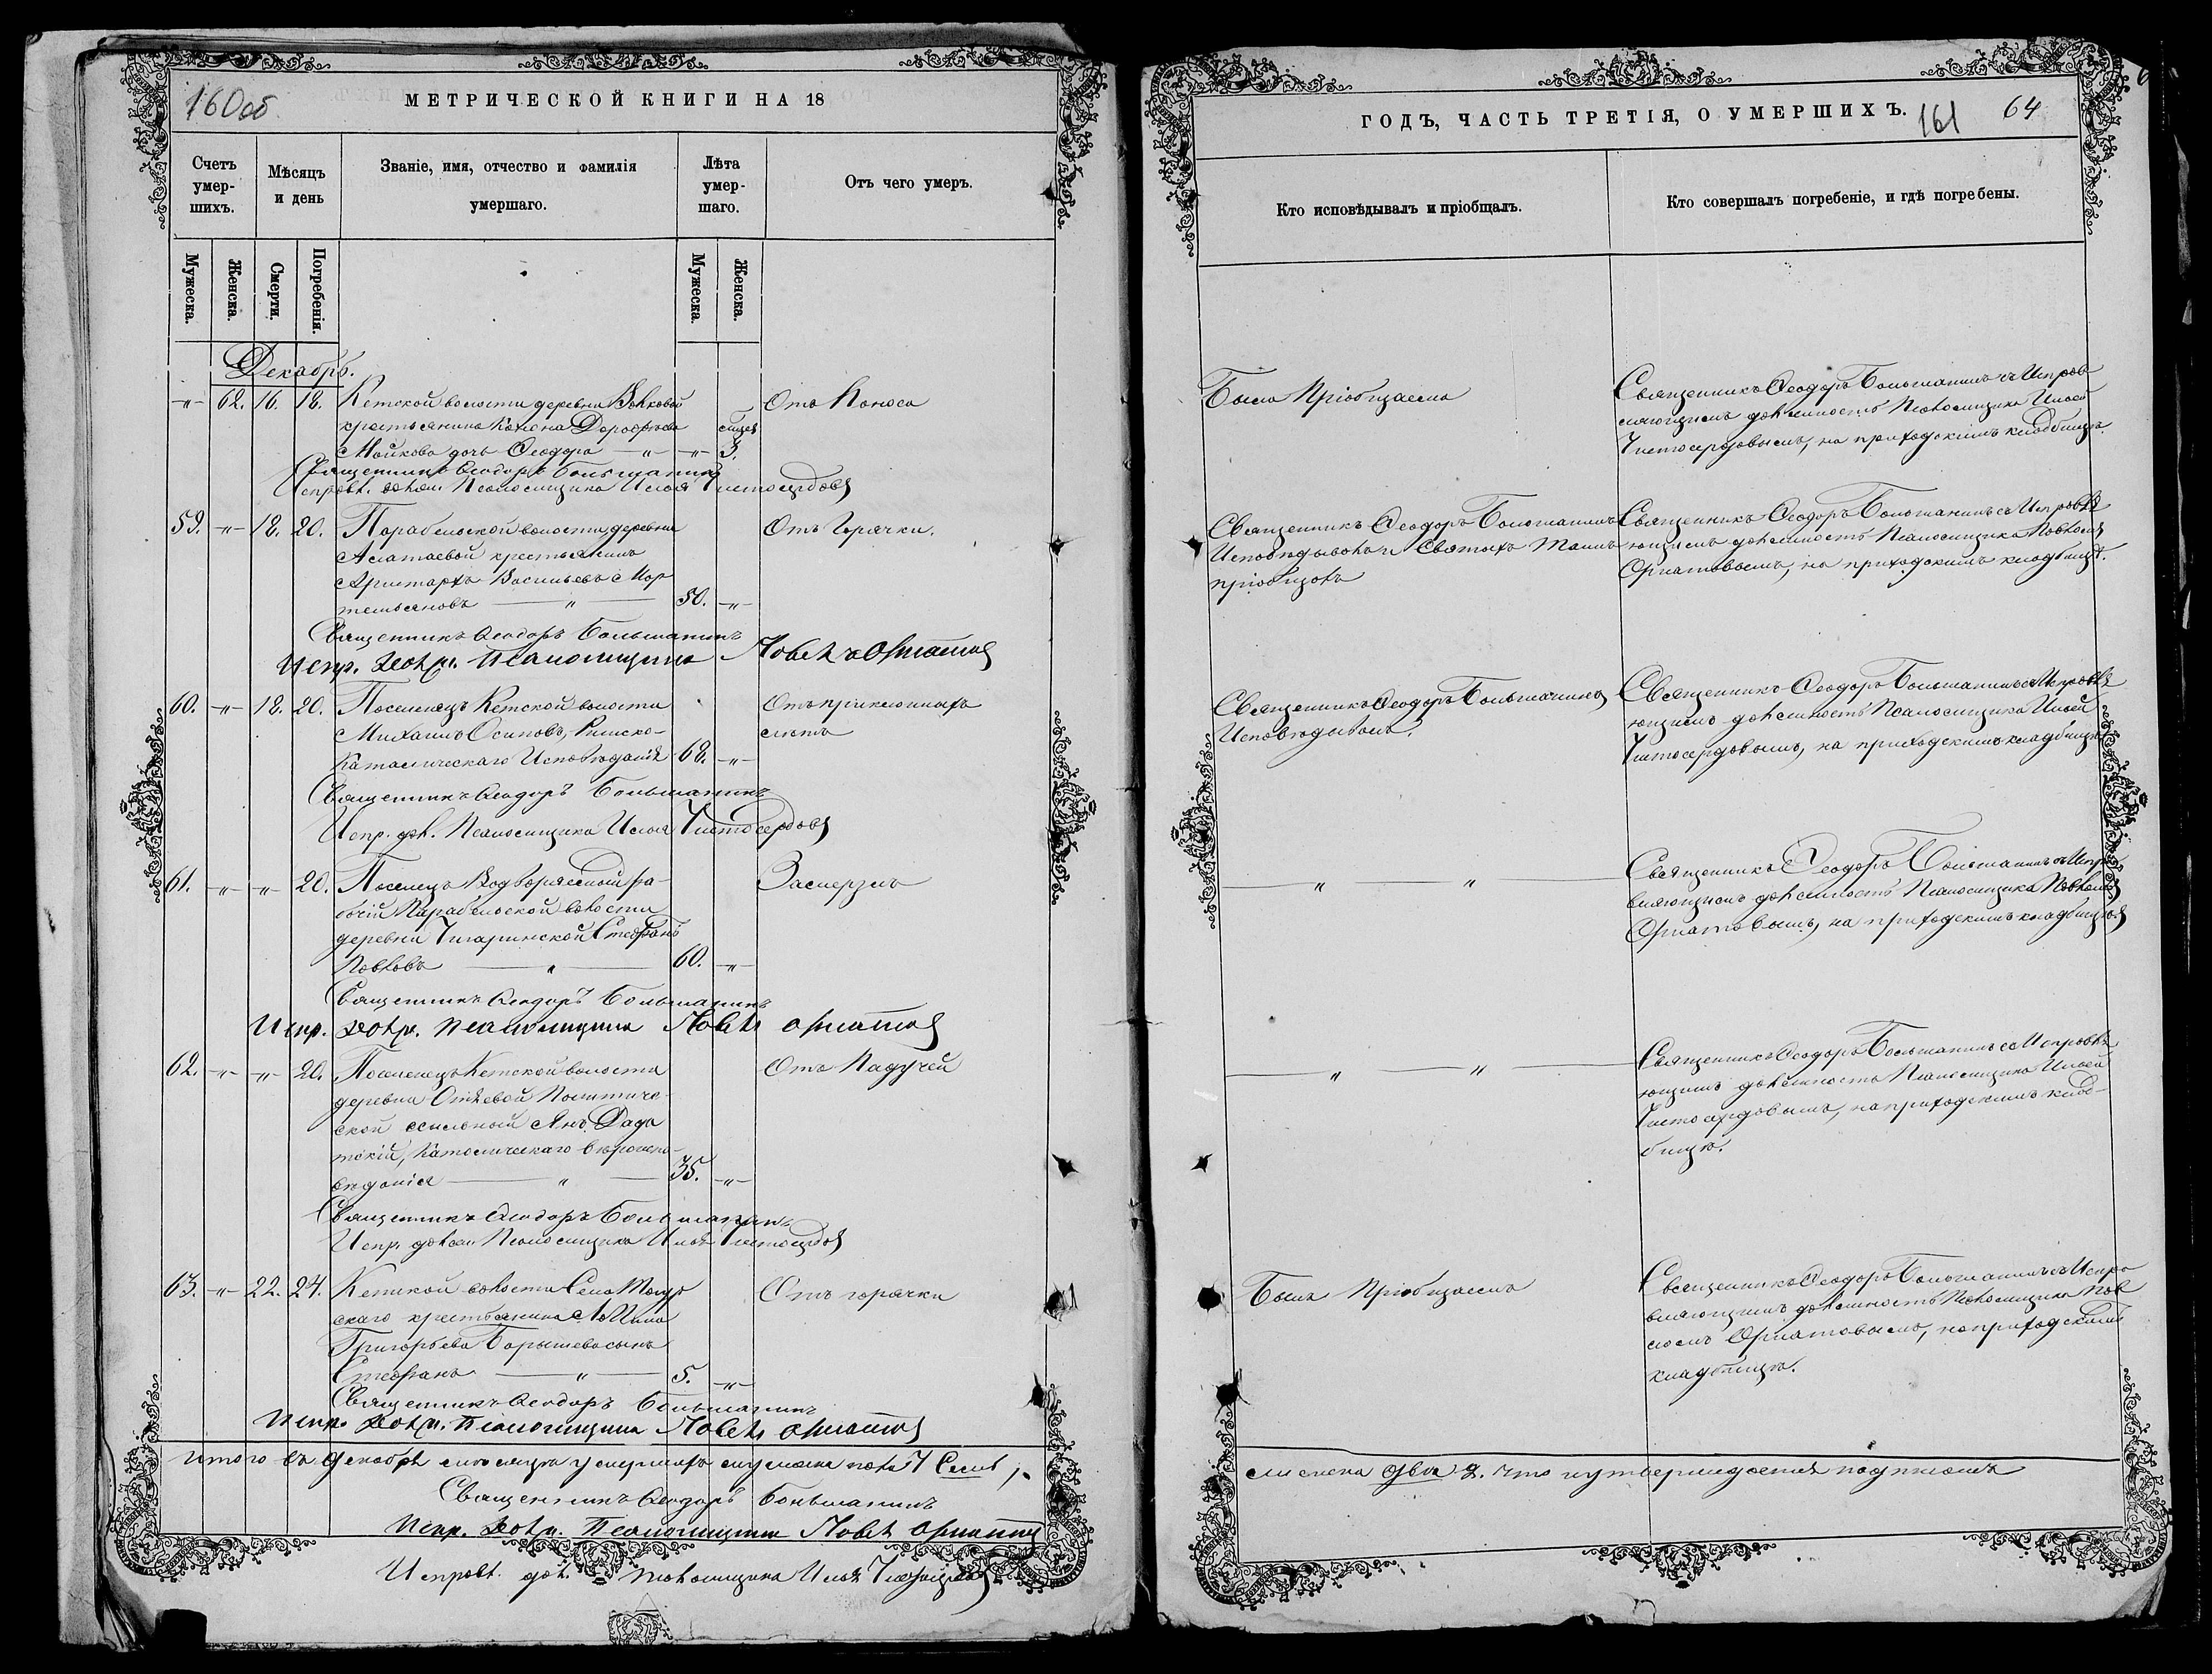 160об
МЕТРИЧЕСКОЙ КНИГИ НА 18
Счетъ умер- шихъ.
Мѣсяцъ и день
Званіе, имя, отчество и фамилія умершаго.
Лѣта умер- шаго.
Отъ чего умеръ.
Мужеска.
Женска.
Смерти.
Погребенія.
Мужеска.
Женска.
Декабрь.
-„- 62. 16. 18. Кетской волости деревни Волковой Отъ Поноса
крестьянина Дорофѣева
Майкова дочь Ѳеодора -„- -„- 3.
Священникъ Ѳеодоръ Большанинъ
Исправл. должн. Псаломщика Илья Чистосердовъ
59. -„- 18. 20. Парабельской волости деревни Отъ Горячки.
крестьянинъ
Аристархъ Васильевъ Мор-
тельяновъ -„- 50. -„-
Священникъ Ѳеодоръ Большанинъ
Испр. долж. Псаломщика Павелъ Орнатов
60. -„- 18. 20. Поселенецъ Кетской волости Отъ приклонныхъ
Михаилъ Осиповъ, Римско- лѣтъ
Католическаго Исповѣданія 68. -„-
Священникъ Ѳеодоръ Большанинъ
Испр. дол. Псаломщика Илья Чистосердовъ
61. -„- -„- 20. Водворяемой ра- Замерзъ
бочій Парабельской волости
деревни Чигаринской Стефанъ
Павловъ -„- 60. -„-
Священникъ Ѳеодоръ Большанинъ
Испр. долж. Псаломщика Павелъ Орнатов
62. -„- -„- 20. Поселенецъ Кетской волости Отъ Падучей
деревни Политиче-
ской ссыльный Янъ
Католическаго вѣроиспо-
вѣданія -„- 35. -„-
Священникъ Ѳеодоръ Большанинъ
Испр. должн. Псаломщика Илья Чистосердов
63. -„- 22. 24. Кетской волости Села Тогур- Отъ горячки
скаго крестьянина
Григорьева Барышева сынъ
Стефанъ -„- 5. -„-
Священникъ Ѳеодоръ Большанинъ
Испр. долж. Псаломщика Павелъ Орнатов
Итого въ Декабрѣ мѣсяцѣ умершихъ мужеска пола 7 Семь,
Священникъ Ѳеодоръ Большанинъ
Испр. долж. Псаломщика Павелъ Орнатов
Исправл. дол. Псаломщика Илья Чистосердов
ГОДЪ, ЧАСТЬ ТРЕТІЯ, О УМЕРШИХЪ.
161
64
Кто исповѣдывалъ и пріобщалъ.
Кто совершалъ погребеніе, и гдѣ погребены.
Была Пріобщаема
Священникъ Ѳеодоръ Большанинъ съ Исправ-
ляющимъ должность Псаломщика Ильей
Чистосердовымъ, на приходскомъ кладбищѣ.
Священникъ Ѳеодоръ Большанинъ
Исповѣдывалъ и Святыхъ Таинъ
пріобщалъ
Священникъ Ѳеодоръ Большанинъ съ Исправля-
ющимъ должность Псаломщика Павломъ
Орнатовымъ, на приходскомъ кладбищѣ.
Священникъ Ѳеодоръ Большанинъ
Исповѣдывалъ.
Священникъ Ѳеодоръ Большанинъ съ Исправля-
ющимъ должность Псаломщика Ильей
Чистосердовымъ, на приходскомъ кладбищѣ
-„- -„-
Священникъ Ѳеодоръ Большанинъ съ Испра-
вляющимъ должность Псаломщика Павломъ
Орнатовымъ, на приходскомъ кладбищѣ
-„- -„-
Священникъ Ѳеодоръ Большанинъ съ Исправля-
ющимъ должность Псаломщика Ильей
Чистосердовымъ, на приходскомъ клад-
бищѣ.
Былъ Пріобщаемъ
Священникъ Ѳеодоръ Большанинъ съ Испра-
вляющимъ должность Псаломщика Пав-
ломъ Орнатовымъ, на приходскомъ
кладбищѣ.
женска два 2. что и утверждается подписомъ